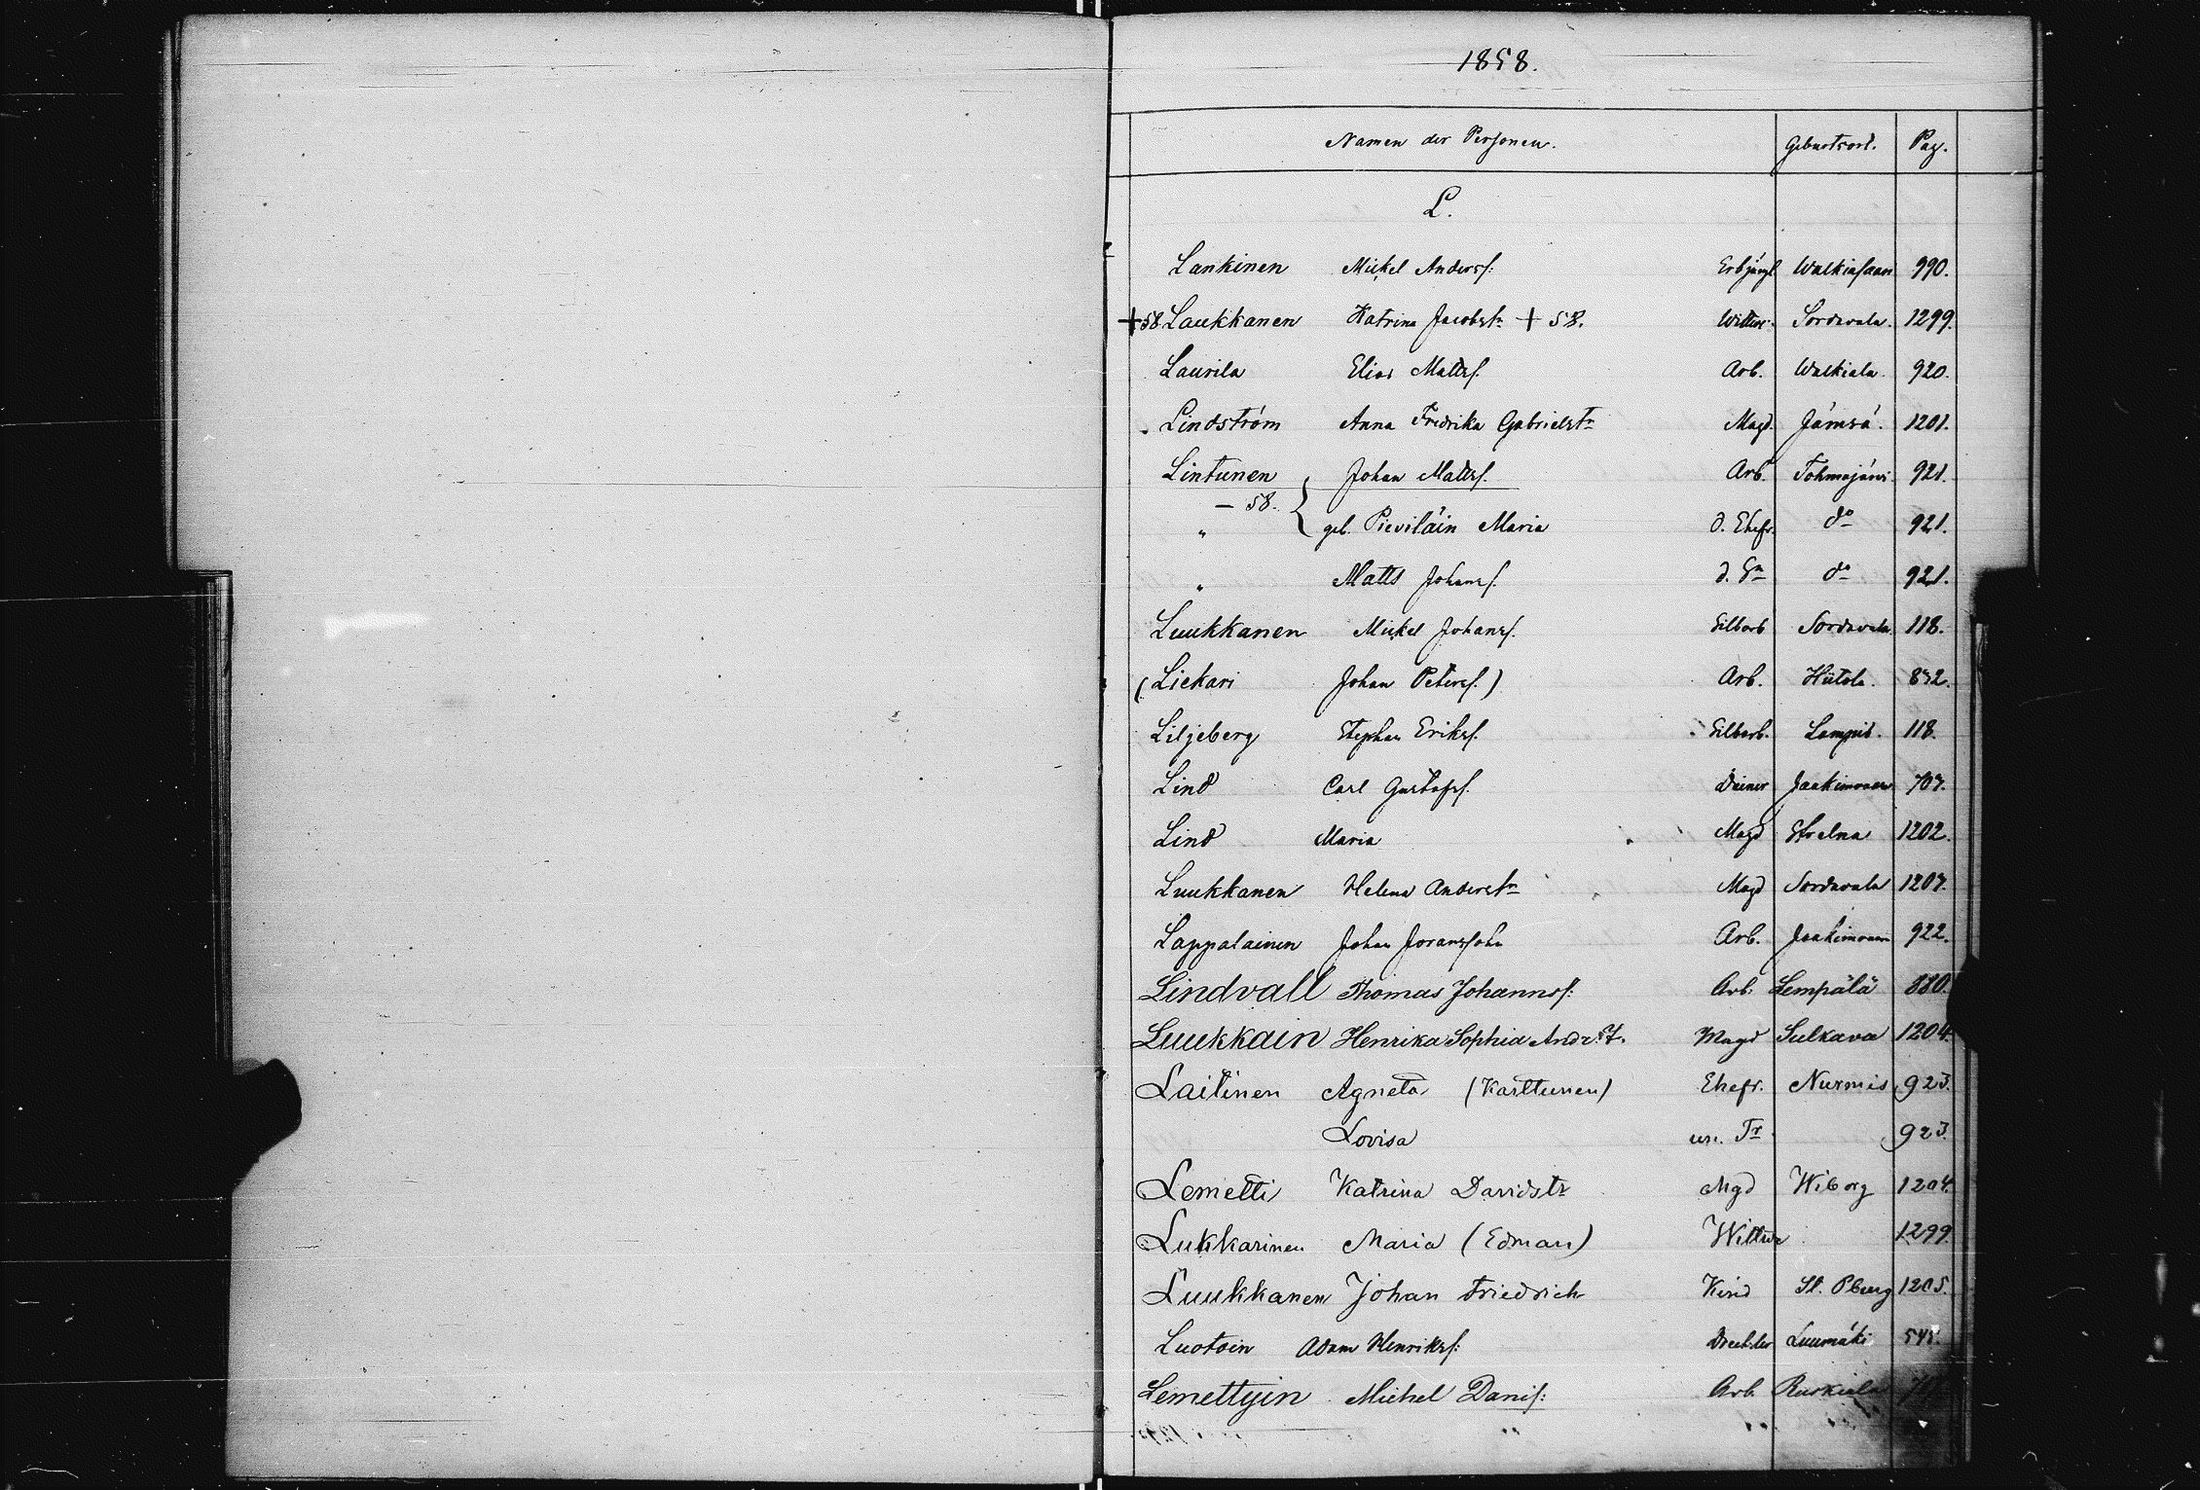 1858.
Namen der Personen. Geburtsort. Pag.
L.
Lankinen Mickel Andersf: Walkiasaari 990.
+58 Laukkanen Katrina Jacobstr + 58. Wittwe. Sordavala. 1299.
Laurila Elias Mattsf. Arb. Walkiala. 920.
Lindström Anna Fredrika Gabrielstr Magd. Jämsä. 1201.
Lintunen Johan Mattsf. Arb. Tohmajärvi. 921.
— 58.
„ geb. Pieviläin Maria d. Ehefr. do 921.
„ Matts Johansf. d. Sn do 921.
Luukkanen Mickel Johansf. Silbarb Sordavala 118.
(Liekari Johan Petersf.) Arb. Hiitola. 832.
Liljeberg Stephan Eriksf. Silbarb. Lampis. 118.
Lind Carl Gustafsf. Diener Jaakimvaara 707.
Lind Maria Magd Strelna 1202.
Luukkanen Helena Anderstr Magd Sordavala 1207.
Lappalainen Johan Joransohn Arb. Jaakimvaara 922.
Lindvall Thomas Johannsf: Arb. Lempälä 880.
Luukkain Henrika Sophia Andr. T. Magd Sulkava 1204.
Laitinen Agneta (Karttunen) Ehefr. Nurmis 923.
Lovisa un. Tr 923.
Lemetti Katrina Davidstr Mgd Wiborg 1204.
Lukkarinen Maria (Edman) Wittwe 1299.
Luukkanen Johan Friedrich Kind St. Pburg 1205.
Luotoin Adam Henriksf: Drechsler Luumäki 545.
Lemettyin Michel Danif: Arb. Ruskiala